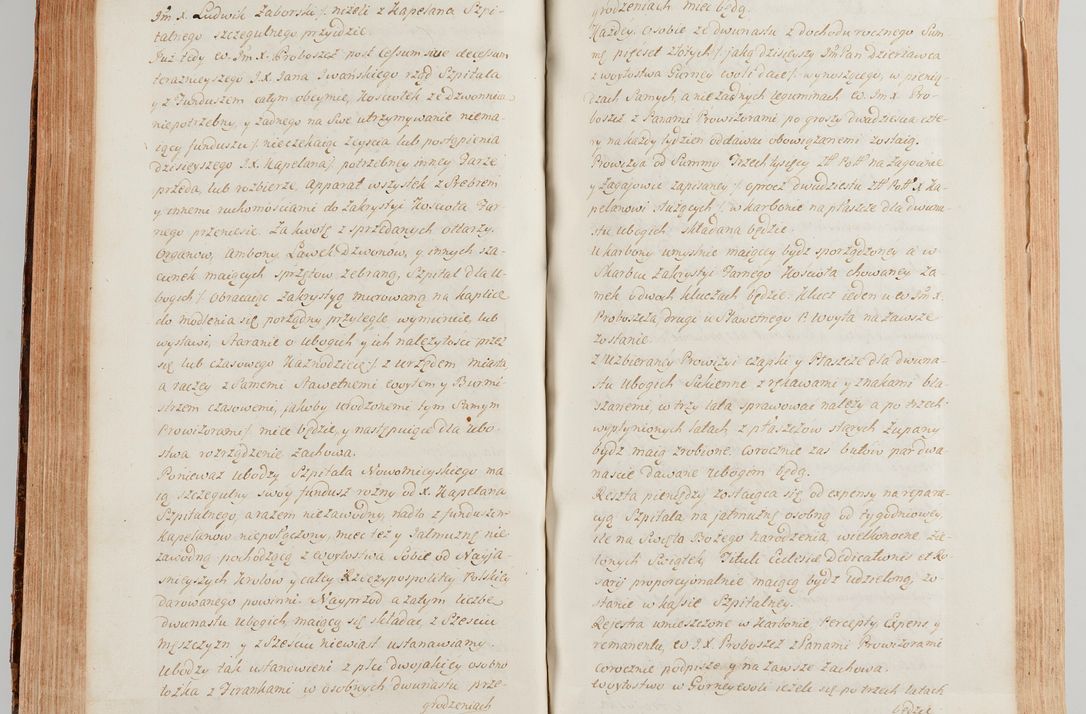 Jm X. Ludwik Zaborski /. nizeli z Kapelana Szpi-
talnego szczegulnego przyidzie.
Już tedy W. Jm. X. Proboszcz post cessum sive decessum
terazneyszego J.X. Jana Iwańskiego rząd Szpitala
y z Funduszem całym obeymie, Kosciołek ze dzwonnicą
niepotrzebny, y zadnego na swe utrzymywanie niema-
iący funduszu /. nieczekaiąc zeyscia lub postąpienia
dzisieyszego J.X. Kapelana /. potrzebney inney Farze
przeda, lub rozbierze, Apparat wszystek z Srebrem
y innemi ruchomościami do Zakrystyi Kościoła Far-
nego przeniesie. Za kwotę z sprzedanych ołtarzy
Organow, Ambony, Ławek, Dzwonów, y innych sza-
cunek maiących sprzętow zebraną, Szpital dla U-
bogich /. obracaiąc zakrystyą murowaną na kaplicę
do modlenia się, porządny przyległe wymuruie, lub
wystawi, Staranie o ubogich y ich należytosci przez
się lub czasowego Kaznodzieię /. z Urzędem miasta
a raczey z Samemi Sławetnemi Woytem y Burmi-
strzem czasowemi, jakoby urodzonemi tym Samym
Prowizorami /. miec będzie, y następuiące dla ubo-
stwa rozrządzenie zachowa.
Poniewaz ubodzy Szpitala Nowomieyskiego ma-
ią szczegulny swóy fundusz rożny od X. Kapelana
Szpitalnego, a razem niezawodny, nadto z funduszem
Kapelanow niepołączony, miec tez y Jałmuznę nie
zawodną pochodzącą z Woytostwa Sobie od Nayja-
śnieyszych Krolow y całey Rzeczypospolitey Polskiey
darowanego powinni. Nayprzod a zatym liczbę
dwunastu ubogich, maiącą się składac z Szesciu
męszczyzn y z Szesciu niewiast ustanawiamy.
Ubodzy tak ustanowieni z płci dwojakiey osobno
łożka z Firankami w osobnych dwunastu prze-
grodzeniach
grodzeniach miec będą.
Kazdey osobie ze dwunastu z dochodu rocznego Sum-
mę pięcset złotych /. jaką dzisieyszy Jm Pan Dzierżawca
z woytostwa Gurney woli daie /. wynoszącego, w pienią-
dzach Samych, a nie żadnych leguminach W. Jm X. Pro-
boszcz z Panami Prowizorami po groszy dwadziescia czte-
ry na kazdy tydzien oddawac obowiązanemi zostaią.
Prowizya od Summy Trzech tysięcy zł Pol na Zagoanie
y Zagajowie zapisaney /. oprocz dwudziestu zł Pol X Ka-
pelanowi służących /. w karbonie na płaszcze dla dwuna-
stu ubogich składana będzie.
U karbony umyslnie maiącey bydz sporządzoney a w
Skarbcu zakrystyi Farnego Kosciota chowaney za-
mek o dwoch kluczach będzie: klucz ieden u W Jm X.
Proboszcza, drugi u Sławetnego P. Woyta na zawsze
zostanie.
Z Uzbieraney Prowizyi czapki y Płaszcze dla dwuna-
stu ubogich Sukienne z rękawami y znakami bla-
szanemi, w trzy lata sprawowac nalezy a po trzech
wypłynionych latach, z płaszczow starych żupany
bydz maią zrobione. Corocznie zas butów par dwa-
nascie dawane ubogom będą.
Reszta pieniędzy zostaiąca się od expensy na repara-
cyą Szpitala na jałmuznę osobną od tygodniowey,
ile na Swięta Bożego Narodzenia, wielkonocne, Zie-
lonych Swiątek, Tituli Ecclesiæ, Dedicationis et Ro-
sarij proporcyonalnie maiącą bydz udzieloną, zo-
stanie w kassie Szpitalney.
Rejestra umieszczone w Karbonie Percepty Expens y
remanentu, W. J.X. Proboszcz z Panami Prowizorami
corocznie podpisze y na zawsze zachowa.
Woytostwo w Gurneywoli iezeli się po trzech latach
będzie